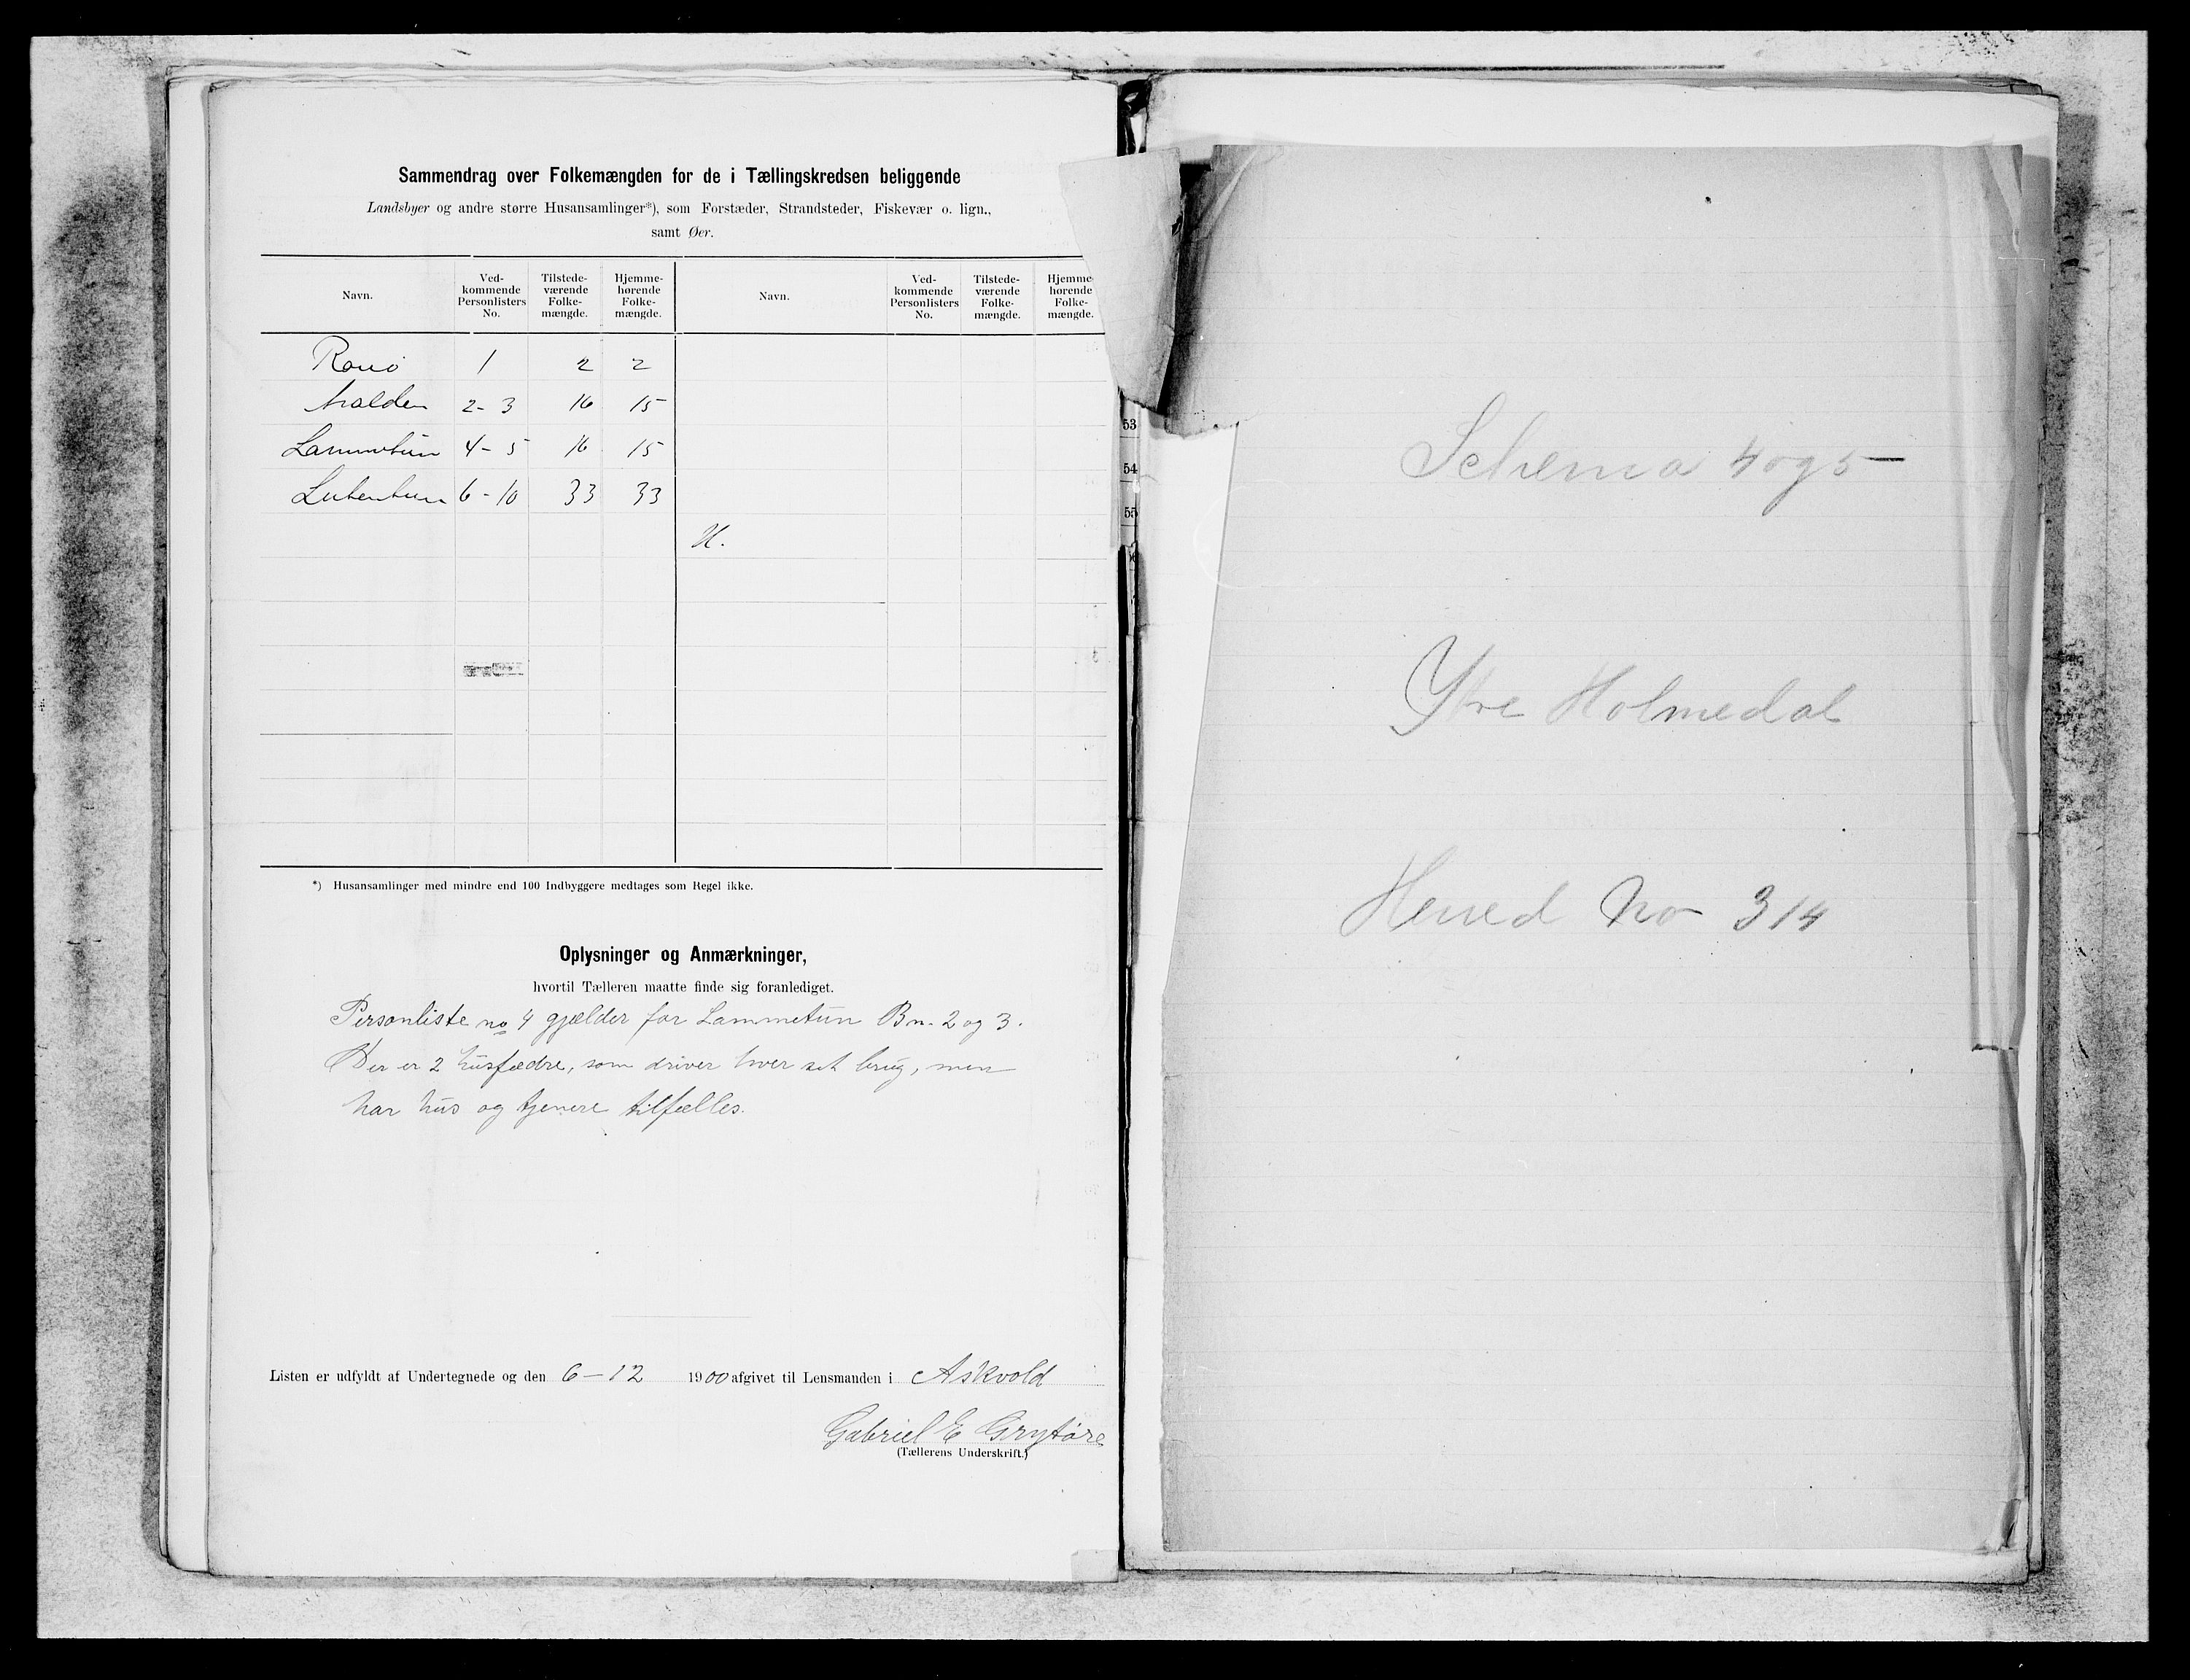 Sammendrag over Folkemængden for de i Tællingskredsen beliggende
Landsbyer og andre større Husansamlinger*), som Forstæder, Strandsteder, Fiskevær o. lign.,
samt Øer.
Navn. Ved-kommende Personlisters No. Tilstede-værende Folke-mængde. Hjemme-hørende Folke-mængde. Navn. Ved-kommende Personlisters No. Tilstede-værende Folke-mængde. Hjemme-hørende Folke-mængde.
1 2 2
2-3 16 15
Lammetun 4-5 16 15
6-10 33 33
H.
53
54
55
*) Husansamlinger med mindre end 100 Indbyggere medtages som Regel ikke.
Oplysninger og Anmærkninger,
hvortil Tælleren maatte finde sig foranlediget.
Personliste no 4 gjælder for Lammetun Bn. 2 og 3.
Der er 2 husfædre, som driver hver sit brug, men
har hus og tjenere tilfælles.
Listen er udfyldt af Undertegnede og den 6-12 1900 afgivet til Lensmanden i Askvold
Gabriel E Grytøre
(Tællerens Underskrift.)
Schema 4 og 5
Ytre Holmedal
Herred No 314